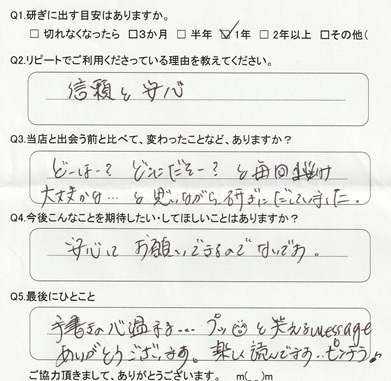 Q1.研ぎに出す目安はありますか。
□ 切れなくなったら □3か月 □ 半年 ☑1年 □ 2年以上 □その他(
Q2.リピートでご利用くださっている理由を教えてください。
信頼と安心
Q3.当店と出会う前と比べて、変わったことなど、ありますか?
どーしよー? どこにだそー? と毎回
大丈夫かな… と思いながら研ぎにだしていました.
Q4.今後こんなことを期待したい・してほしいことはありますか?
安心してお願いできるのでないです。
Q5.最後にひとこと
手書きの心温まる… プッと笑えるmessage
ありがとうございます。楽しく読んでます…
ご協力頂きまして、ありがとうございます。 m(_ _)m